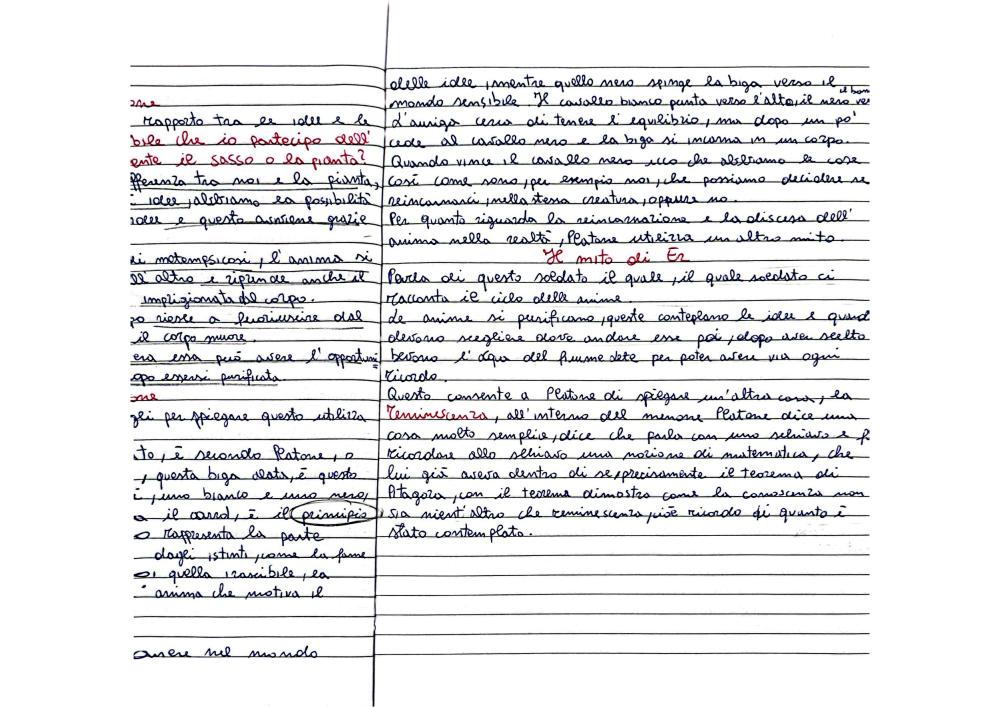 one
Rapporto tra le idee e le
bile che io partecipo dell'
ente il sasso o la pianta?
fferenza tra noi e la pianta,
idee, abbiamo la possibilità
idee e questo avviene grazie
di metempsicosi, l'anima si
ll'altro e riprende anche il
imprigionata dal corpo.
po riesce a fuoriuscire dal
il corpo muore.
era essa può avere l'opportuni
opo essersi purificata.
one
gli per spiegare questo utilizza
to, è secondo Platone, o
, questa biga alata, è questo
i, uno bianco e uno nero,
a il carro, è il principio
o rappresenta la parte
dagli istinti, come la fame
di quella irascibile, la
anima che motiva il
avere nel mondo
delle idee, mentre quello nero spinge la biga verso il
mondo sensibile. Il cavallo bianco punta verso l'alto, il nero ver
il bas
L'auriga cerca di tenere l'equilibrio, ma dopo un po'
cede al cavallo nero e la biga si incarna in un corpo.
Quando vince il cavallo nero ecco che abbiamo le cose
così come sono, per esempio noi, che possiamo decidere se
reincarnarci, nella stessa creatura, oppure no.
Per quanto riguarda la reincarnazione e la discesa dell'
anima nella realtà, Platone utilizza un altro mito.
Il mito di Er
Parla di questo soldato il quale, il quale soldato ci
racconta il ciclo delle anime.
Le anime si purificano, queste conteplano le idee e quand
devono scegliere dove andare esse poi, dopo aver scelto
bevono l'acqua del fiume Lete per poter avere via ogni
ricordo.
Questo consente a Platone di spiegare un'altra cosa, la
reminescenza, all'interno del menone Platone dice una
cosa molto semplice, dice che parla con uno schiavo e f
ricordare allo schiavo una nozione di matematica, che
lui già aveva dentro di se, precisamente il teorema di
Pitagora, con il teorema dimostra come la conoscenza non
sia nient'altro che reminescenza, cioè ricordo di quanto è
stato contemplato.